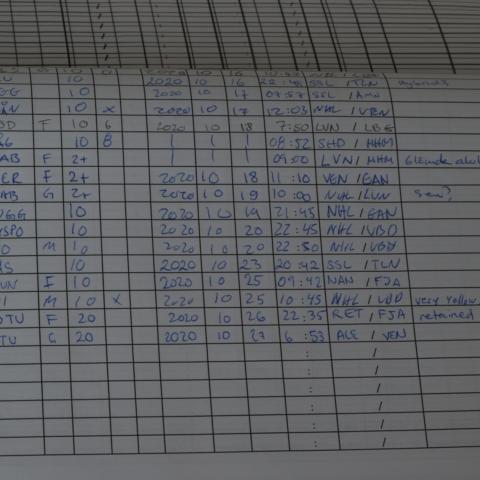 10 2020 10 16 22:48 SSL / TLN
GG 10 2020 10 17 07:57 SSL /
10 X 2020 10 17 12:03 NHL / VBN
BD F 10 6 2020 10 18 7:50 LVN / LBG
10 8 | | | 08:52 SHD / HHM
AB F 2+ | | | 09:00 LVN / HHM
ER F 2+ 2020 10 18 11:10 VEN / GAN
AB G 2+ 2020 10 19 10:00 NHL / LVN
GG 10 2020 10 19 21:45 NHL / GAN
SPO 10 2020 10 20 22:45 NHL / VBD
O M 10 2020 10 20 22:50 NHL / VBD
S 10 2020 10 23 20:42 SSL / TLN
UN I 10 2020 10 25 09:42 NAN / FJA
I M 10 X 2020 10 25 10:45 NHL / VBD very yellow
OTU F 20 2020 10 26 22:35 RET / FJA retained
TU G 20 2020 10 27 6:53 ALE / VEN
: /
: /
: /
: /
: /